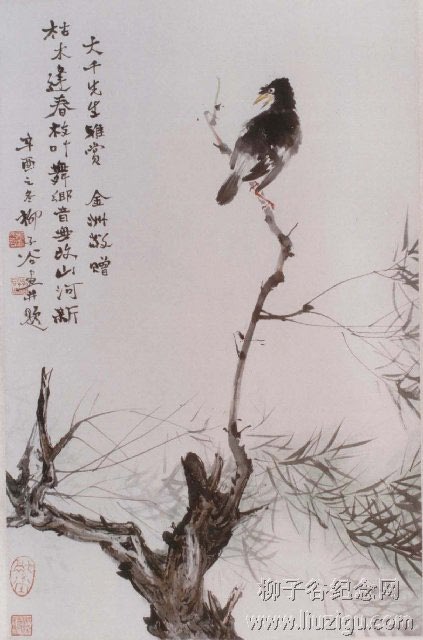 大千先生雅赏 金洲敬赠
枯木逢春枝叶舞鄉音無改山河新
辛酉之冬柳子谷画并题
柳子谷纪念网
www.liuzigu.com